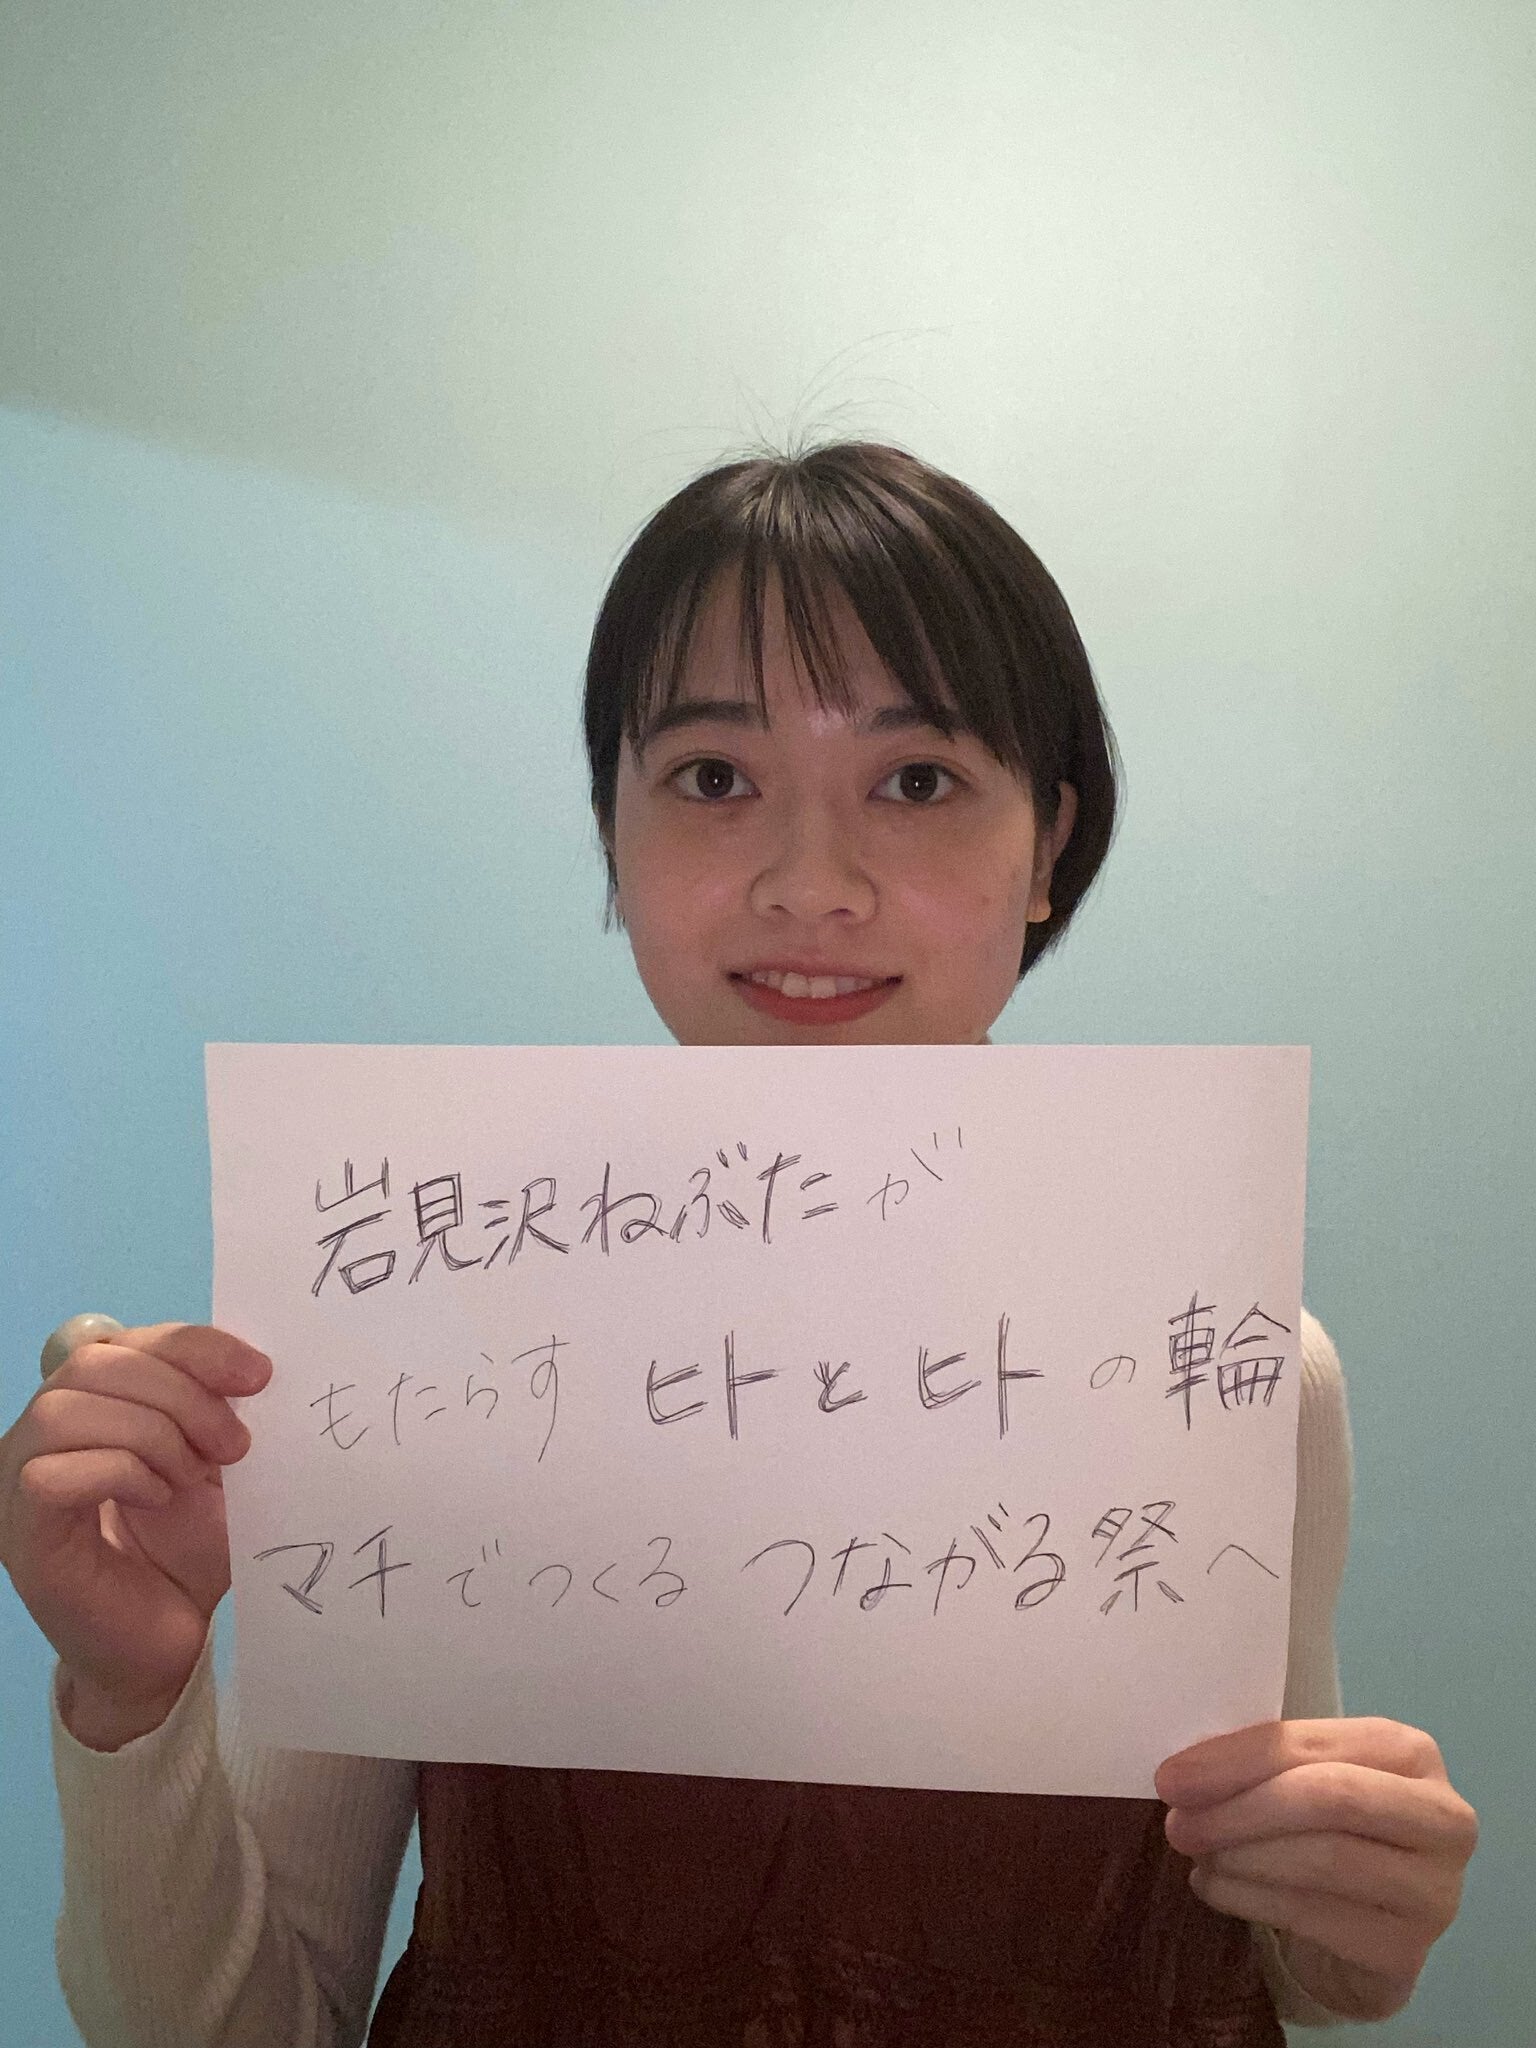 岩見沢ねぶたが
もたらす ヒトとヒトの輪
マチでつくる つながる祭へ